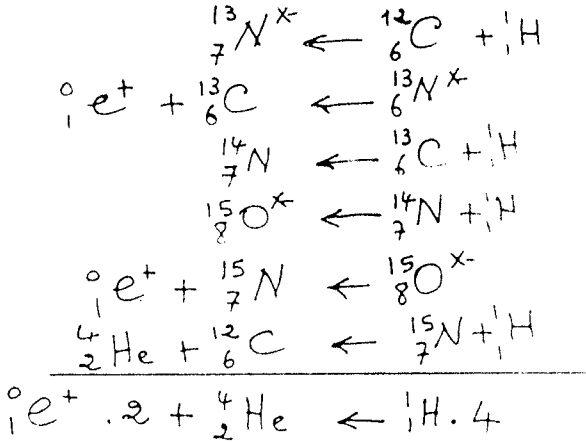 ¹³₇N* ← ¹²₆C + ¹₁H
⁰₁e⁺ + ¹³₆C ← ¹³₆N*
¹⁴₇N ← ¹³₆C + ¹₁H
¹⁵₈O* ← ¹⁴₇N + ¹₁H
⁰₁e⁺ + ¹⁵₇N ← ¹⁵₈O*
⁴₂He + ¹²₆C ← ¹⁵₇N + ¹₁H
⁰₁e⁺ . 2 + ⁴₂He ← ¹₁H . 4